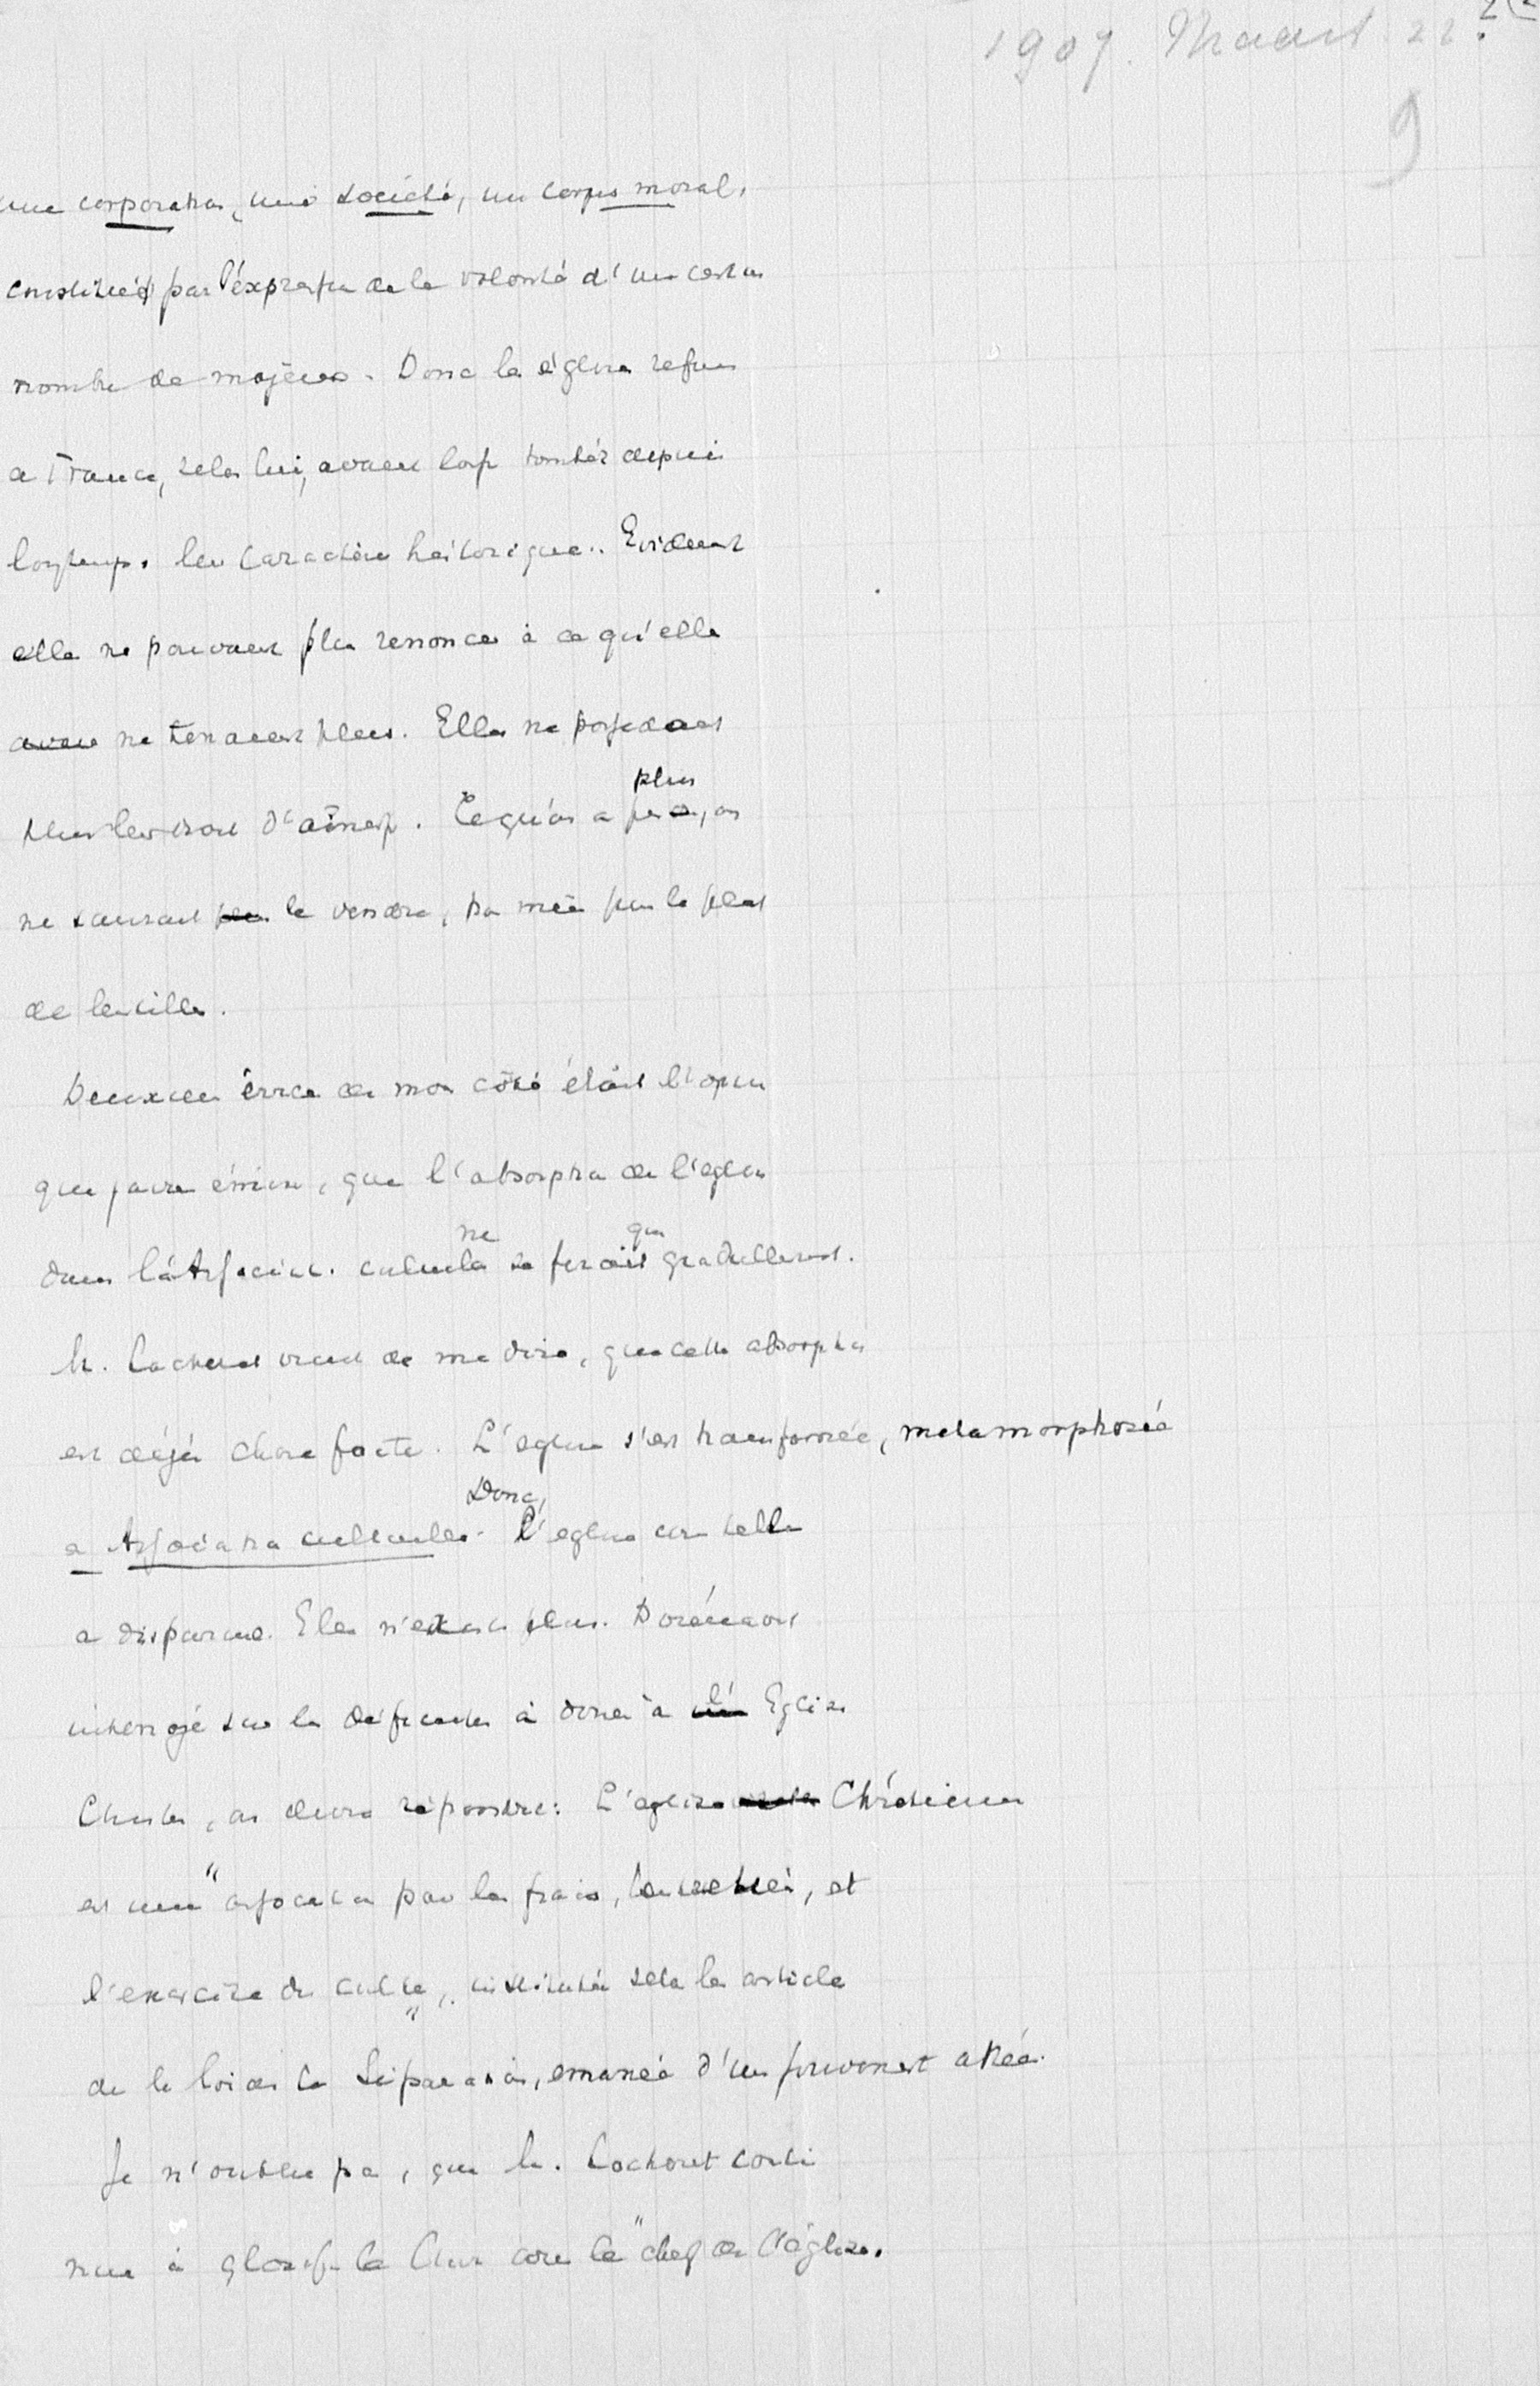 1907. Maart 22.
9
une corporation, une société, un corps moral,
constitué par l'expression de la volonté d'un certain
nombre de majeurs. Donc les églises refor
en France, selon lui, avaient laissé tomber depuis
longtemps leur caractère historique. Evident
elle ne pouvait plus renoncer à ce qu'elle
ne tenait plus. Elle ne possédait
plus leur droit d'aînesse. Ce qu'on a plus, on
ne saurait le vendre, pas même pour le plat
de lentilles.
Deuxième erreur de mon côté était l'opinion
que j'avais émise, que l'absorption de l'église
dans l'Associat. cultuelle ne se ferait que graduellement.
M. Lacheret vient de me dire, que cette absorption
est déjà chose faite. L'église s'est transformée, metamorphosée
en Association cultuelle. Donc, l'église comme telle
a disparue. Elle n'existe plus. Dorénavant
interrogé sur la définition à donner à l' Eglise
Chrétien, on devra répondre: L'eglise Chrétienne
est une "association pour les frais, l'entretien, et
l'exercice du culte", instituée selon les article
de la loi de la Séparation, emanée d'un gouvernement athée.
Je n'oublie pas, que M. Lacheret conti
nue à glorifier le Christ comme le "chef de l'église.